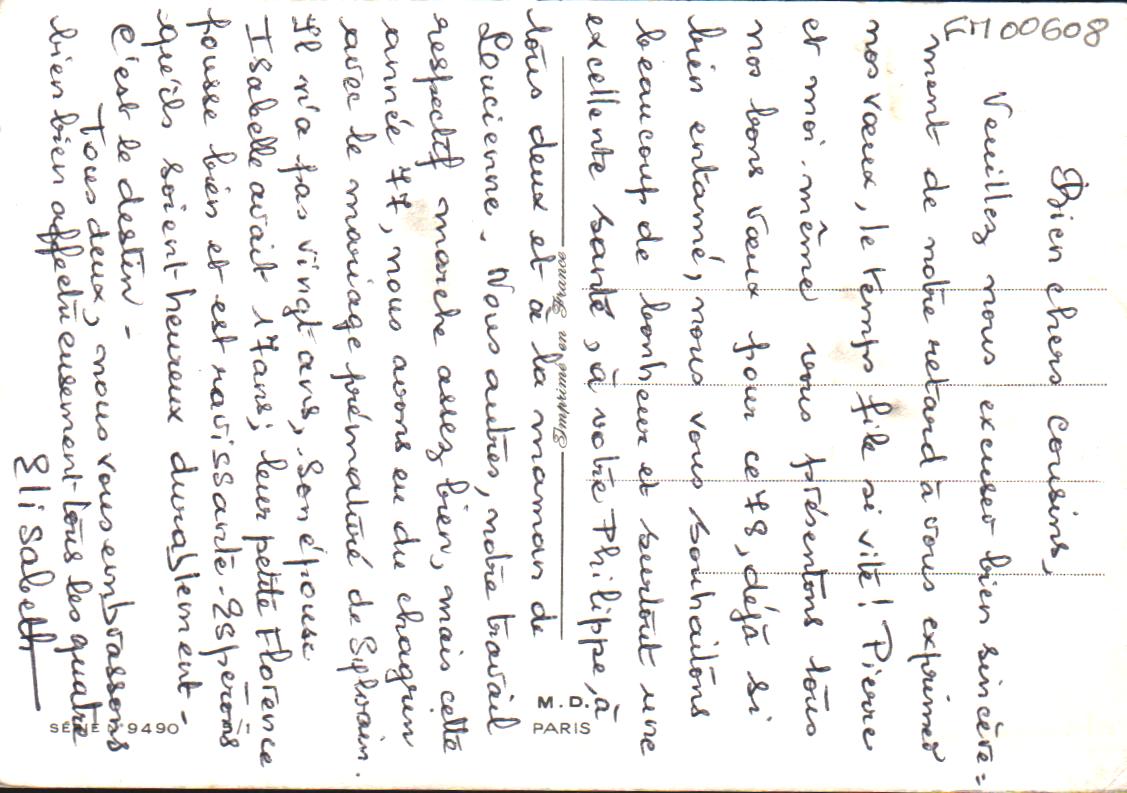 FM 00608
Bien chers cousins,
Veuillez nous excuser bien sincère=
ment de notre retard à vous exprimer
nos vœux, le temps file si vite! Pierre
et moi-même vous présentons tous
nos bons vœux pour ce 78, déjà si
bien entamé, nous vous souhaitons
beaucoup de bonheur et surtout une
excellente santé, à votre Philippe, à
tous deux et à la maman de
Lucienne. Nous autres, notre travail
respectif marche assez bien, mais cette
année 77, nous avons eu du chagrin
avec le mariage prématuré de Sylvain.
Il n'a pas vingt ans, son épouse
Isabelle avait 17 ans; leur petite Florence
pousse bien et est ravissante - Espérons
qu'ils soient heureux durablement -
C'est le destin -
Tous deux, nous vous embrassons
bien bien affectueusement tous les quatre
Elisabeth
Imprimé en France
M. D.
PARIS
SÉRIE 9490 /1